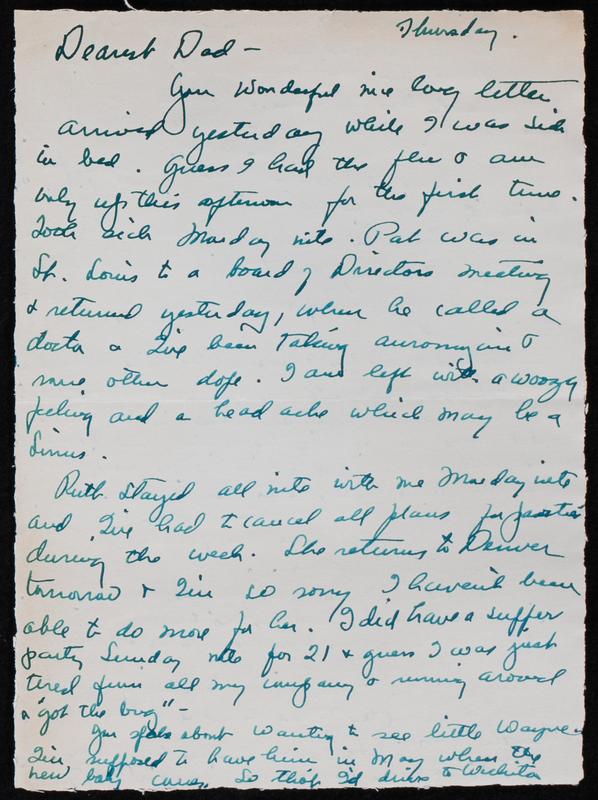 Thursday.
Dearest Dad -
Your wonderful nice long letter
arrived yesterday while I was sick
in bed. Guess I had the flu & am
only up this afternoon for the first time.
Took sick Monday nite. Pat was in
St. Louis to a board of Directors meeting
& returned yesterday, when he called a
doctor & I've been taking auromycin &
some other dope. I am left with a woozy
feeling and a head ache which may be a
Sinus.
Ruth stayed all nite with me Monday nite
and I've had to cancel all plans for parties
during the week. She returns to Denver
tomorrow & I'm so sorry I haven't been
able to do more for her. I did have a supper
party Sunday nite for 21 & guess I was just
tired from all my company & running around
& "got the bug" -
You spoke about wanting to see little Wayne
I'm supposed to have him in May when the
new baby comes. So thot I'd drive to Wichita